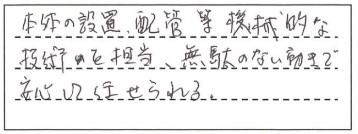 本体の設置、配管等機械的な
技術面を担当、無駄のない動きで
安心して任せられる。